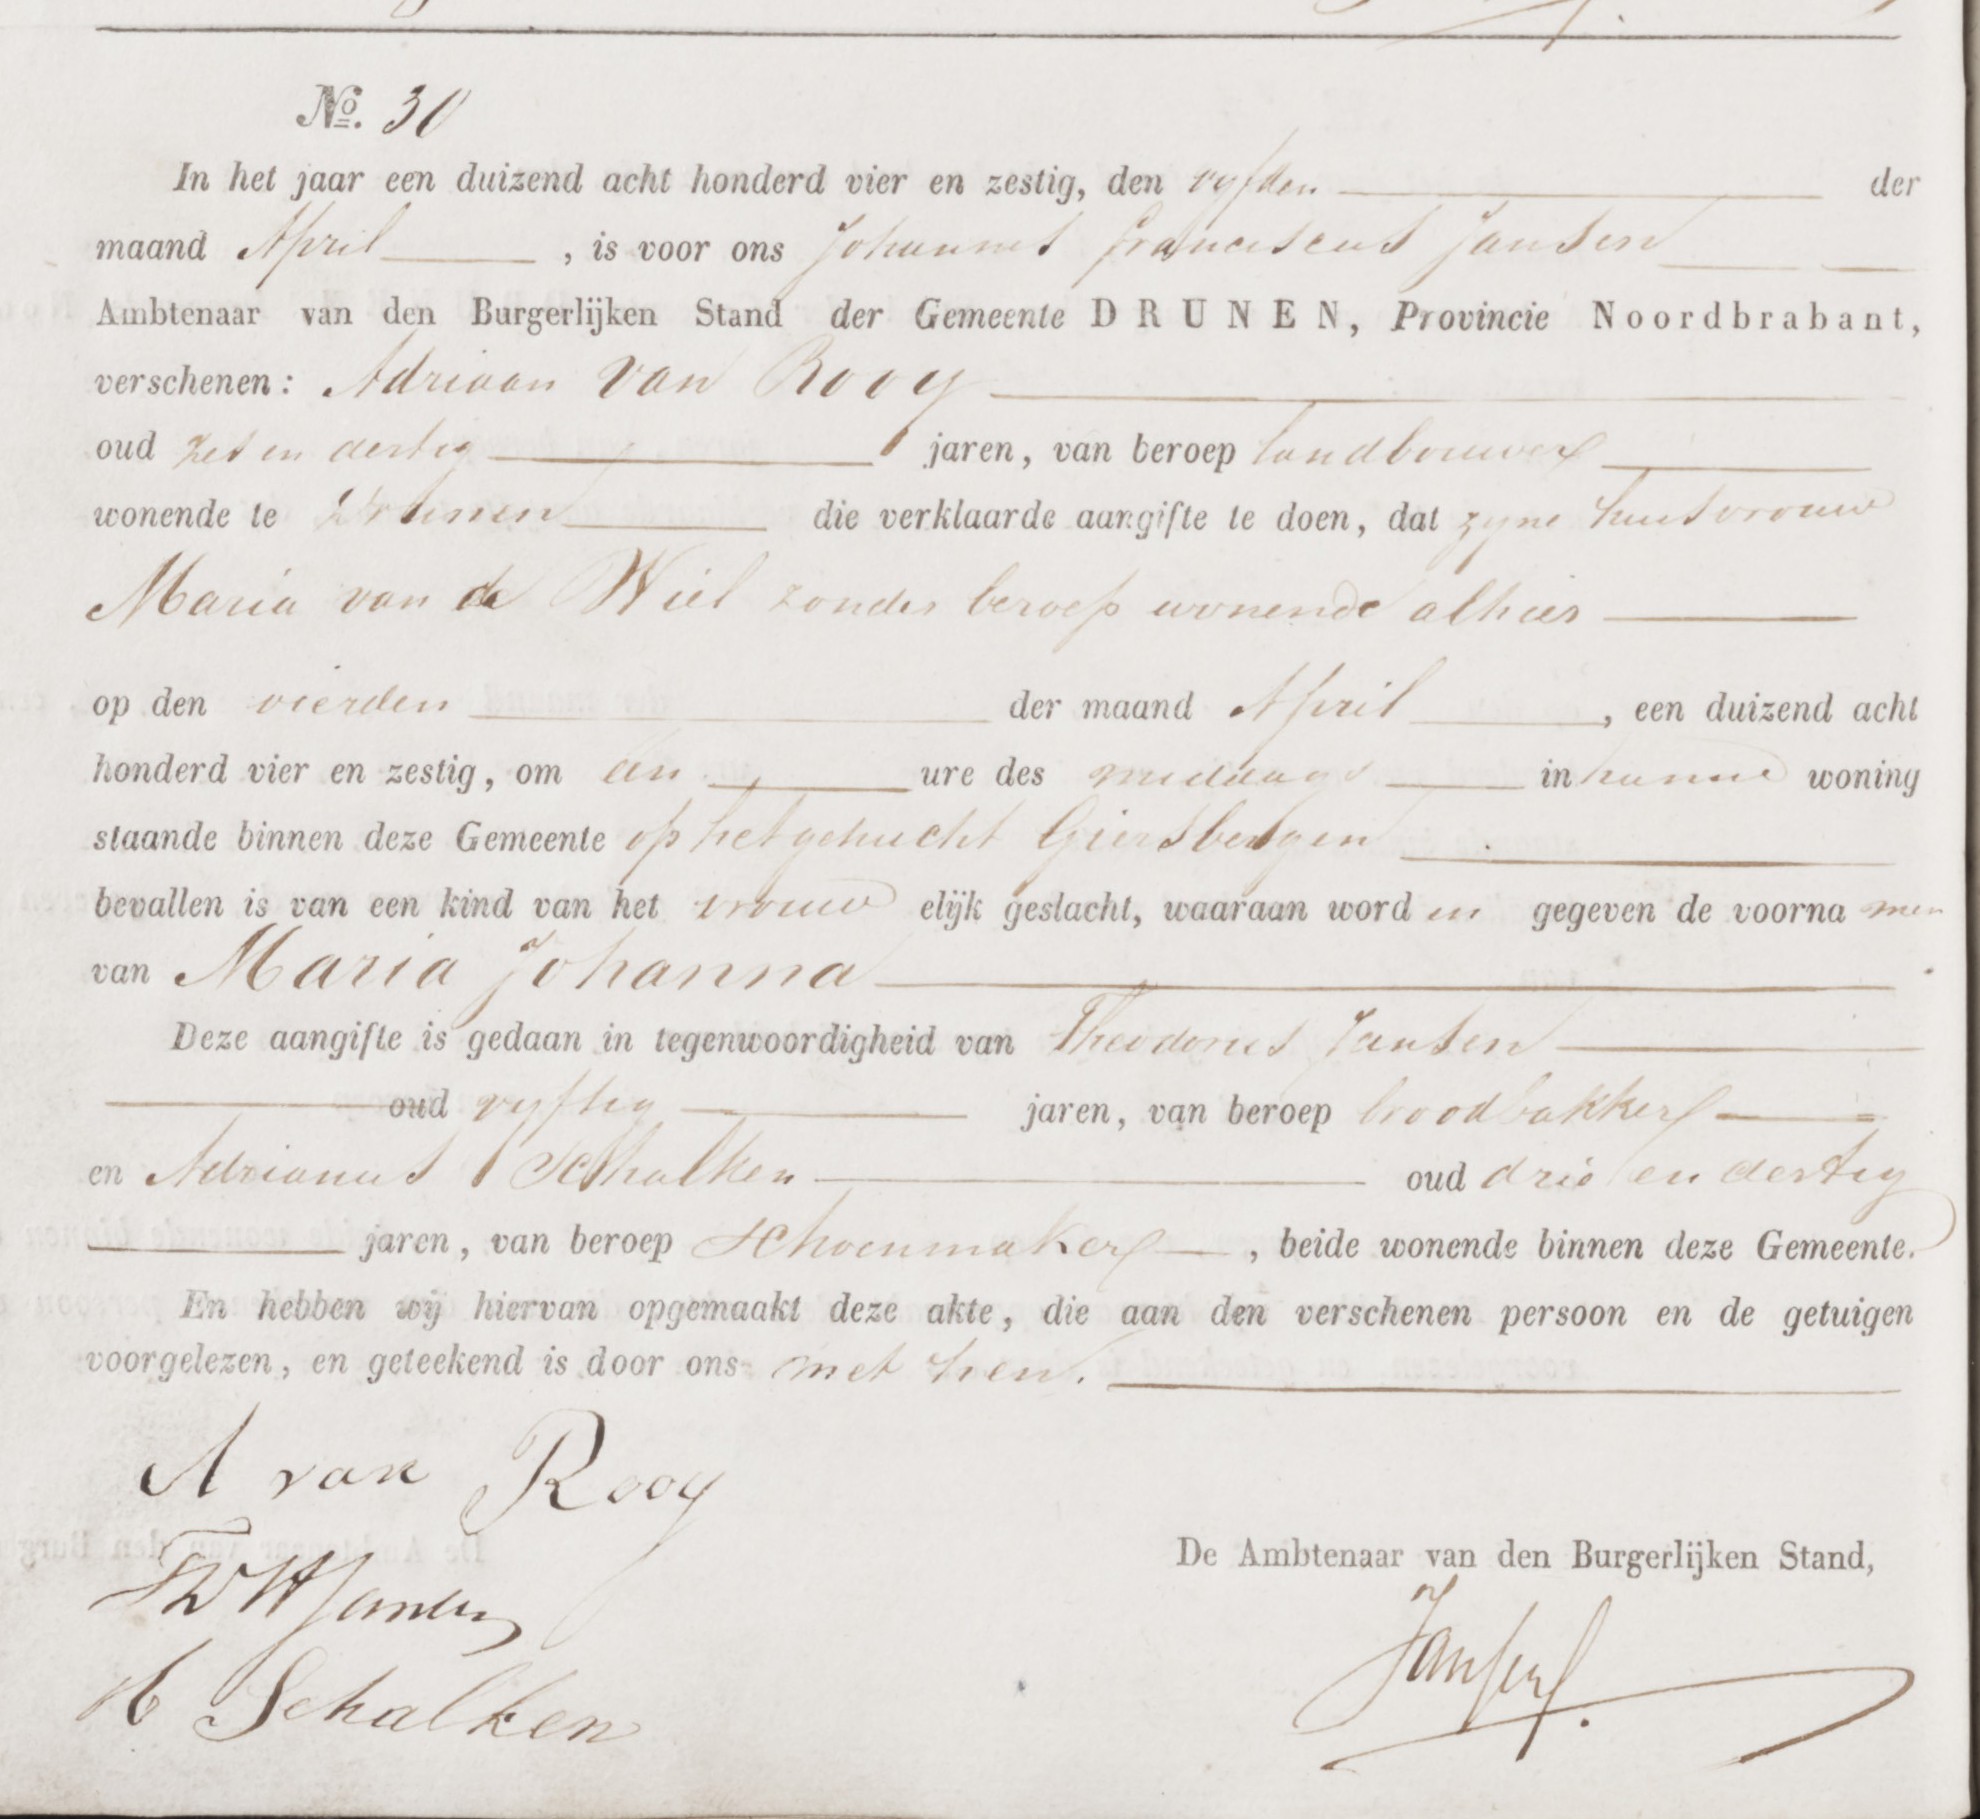 No. 30
In het jaar een duizend acht honderd vier en zestig, den vyfden der
maand April , is voor ons Johannes Franciscus Jansen
Ambtenaar van den Burgerlijken Stand der Gemeente DRUNEN, Provincie Noordbrabant,
verschenen: Adriaan van Rooy
oud zes en dertig jaren, van beroep landbouwer
wonende te Drunen die verklaarde aangifte te doen, dat zyne huisvrouw
Maria van de Wiel zonder beroep wonende alhier
op den vierden der maand April , een duizend acht
honderd vier en zestig, om een ure des middags in hunne woning
staande binnen deze Gemeente op het gehucht Giersbergen
bevallen is van een kind van het vrouw elijk geslacht, waaraan word en gegeven de voorna men
van Maria Johanna
Deze aangifte is gedaan in tegenwoordigheid van Theodorus Jansen
oud vyftig jaren, van beroep broodbakker
en Adrianus Schalken oud drie en dertig
jaren, van beroep schoenmaker , beide wonende binnen deze Gemeente.
En hebben wij hiervan opgemaakt deze akte, die aan den verschenen persoon en de getuigen
voorgelezen, en geteekend is door ons met hen.
A van Rooy
De Ambtenaar van den Burgerlijken Stand,
Jansen
Jansen
Schalken